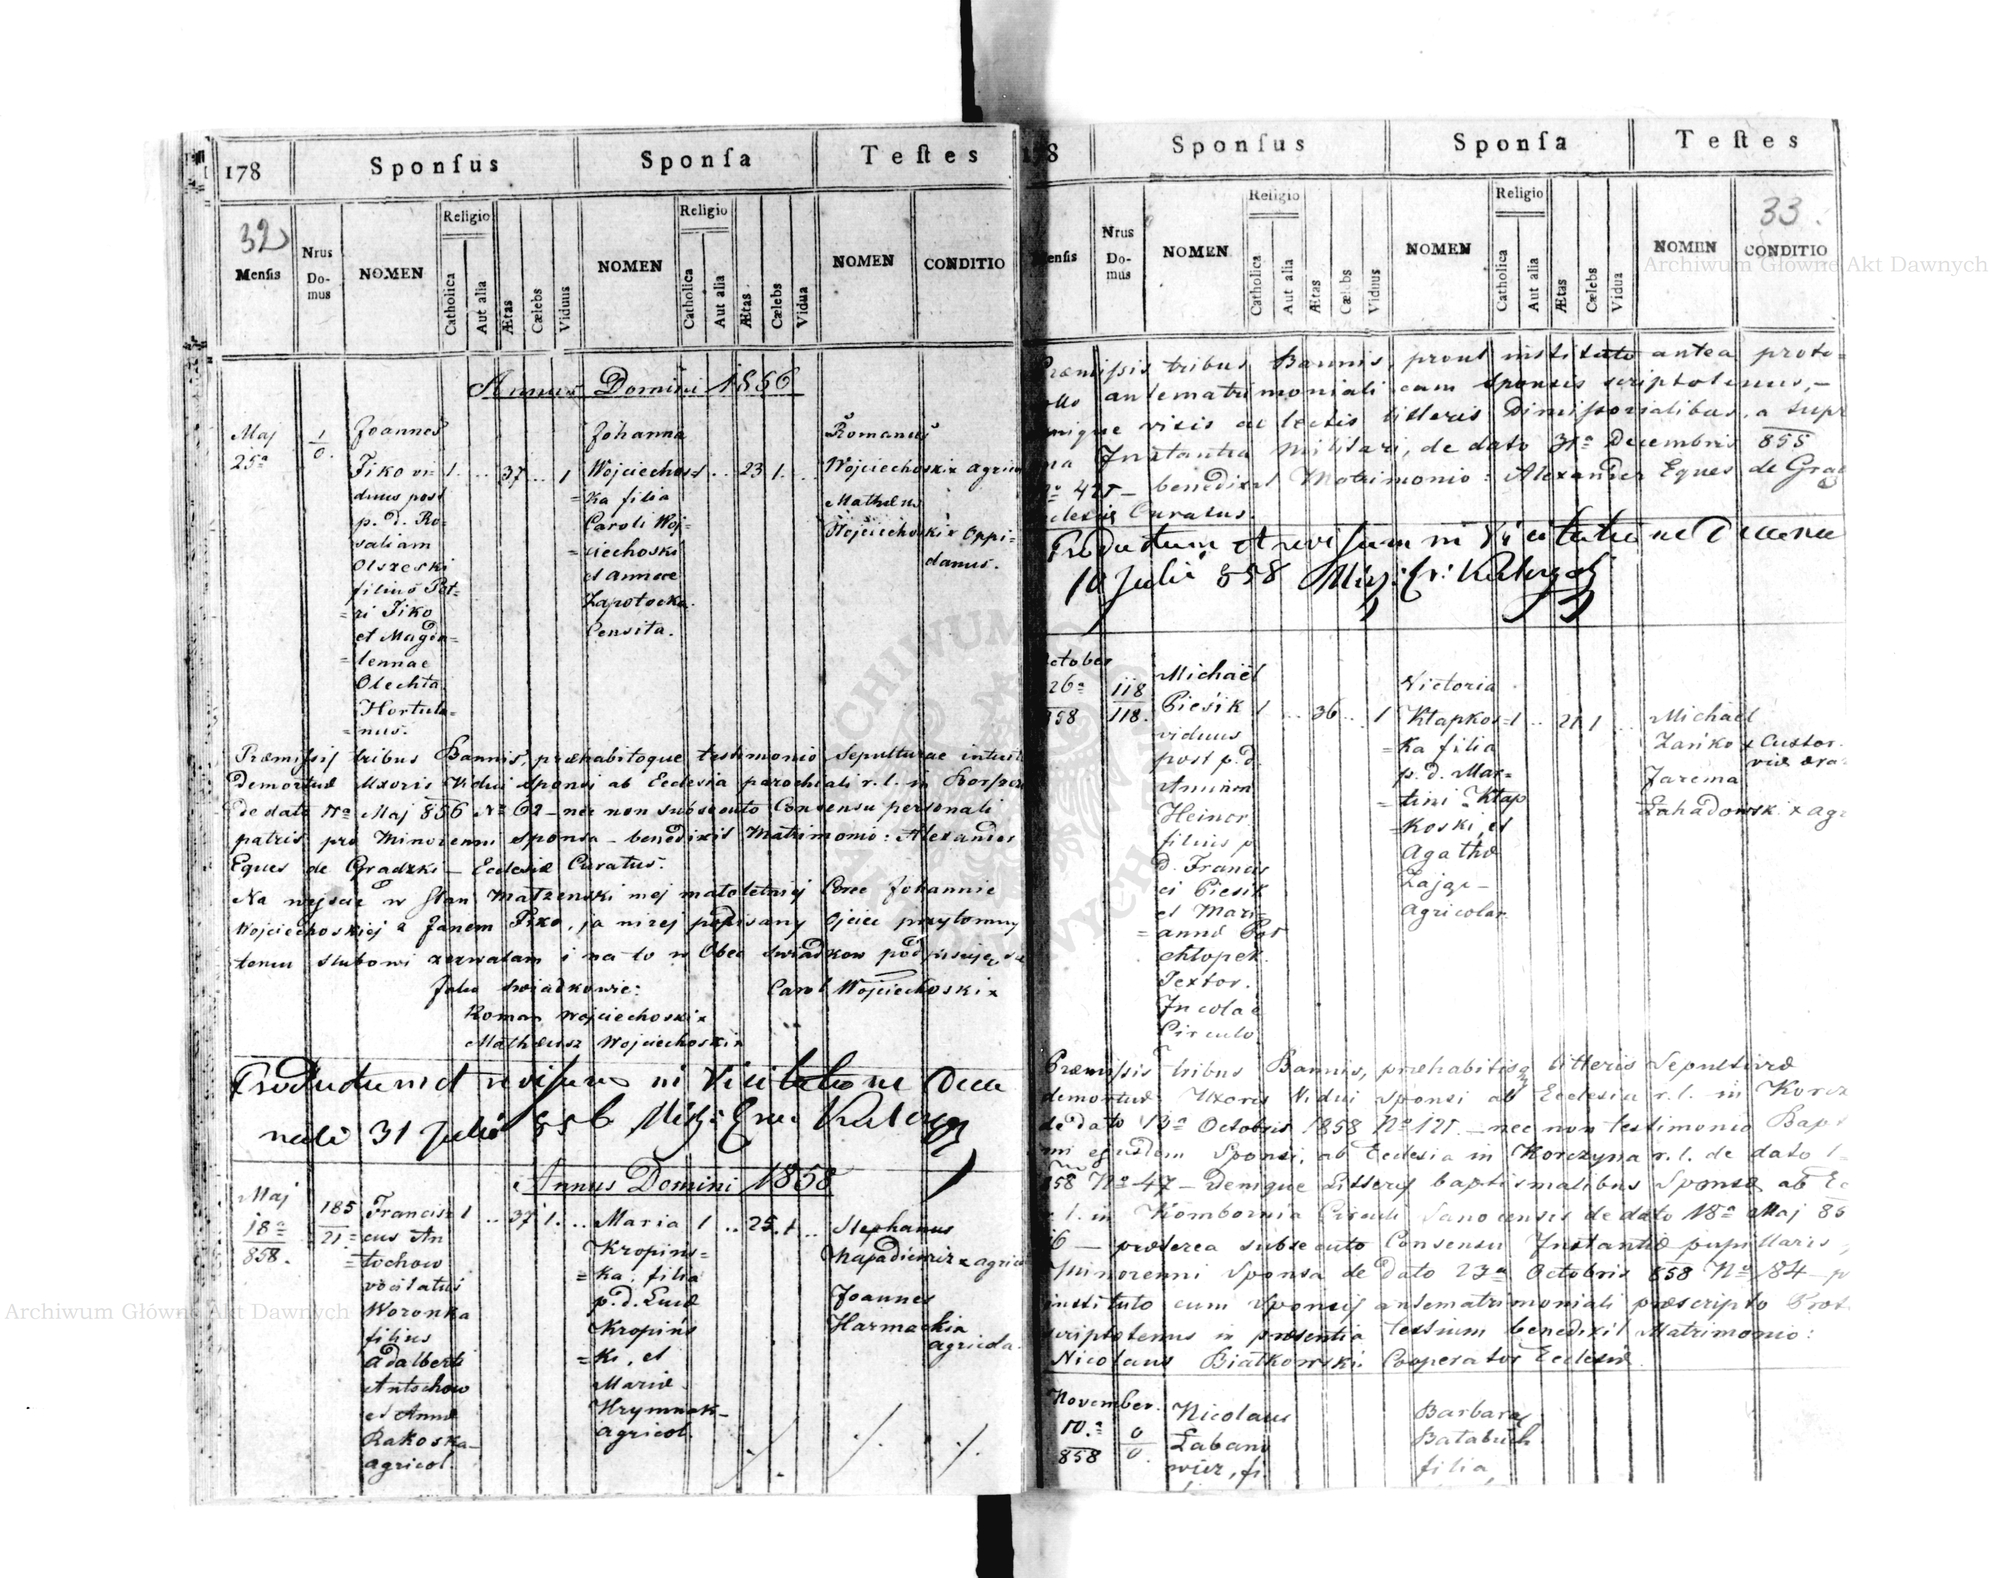 178 Sponſus Sponſa Teſtes
32
Menſis Nrus Do-mus NOMEN Religio Catholica Aut alia Ætas Cælebs Viduus NOMEN Religio Catholica Aut alia Ætas Cælebs Vidua NOMEN CONDITIO
Annus Domini 1856
Maj
25ª
1
0
Joannes
Fiko vi-
duus post
p. d. Ro=
saliam
Olszeski
filius Pet-
=ri Fiko
et Magda=
=lennae
Olechta
Hortula=
=nus.
1 .. 37 .. 1
Johanna
Wojciechos
=ka filia
Caroli Woj=
=ciechoski
et Annae
Zapotocka.
Censita.
1 .. 23 1.
Romanus
Wojciechoski x agri
Mathæus
Wojciechoski x Oppi=
danus.
Præmiſsis tribus Bannis, præhabitoque testimonio Sepulturae intuitu
Demortuæ Uxoris Vidui Sponsi ab Ecclesia parochiali r. l. in
de dato Maj 856 Nº 62 – nec non subsecuto Consensu personali
patris pro Minorenni Sponsa – benedixit Matrimonio: Alexander
Eques de Gradzki – Ecclesiæ Curatus.
Na wyście w stan Małżenski mej małoletniej Corce Johannie
Wojciechoskiej z Janem Fiko, ja niżej podpisany Ojciec przytomny
temu slubowi zezwalam i na to w Obec swiadkow podpisuję
Jako swiadkowie: Carol Wojciechoski x
Roman Wojciechoski x
Matheusz Wojciechoski x
Productum et revisum in Visitatione Deca
nali 31 Julii 856
Annus Domini 1858
Maj
18ª
858.
185
21
Francisz
cus An
=tochow
vocitatus
Woronka
filius
Adalberti
Antochow
et Annæ
Rakoska
agricol.
1 .. 37 1. ..
Maria
Kropins=
=ka, filia
p. d. Lucæ
Kropins
=ki, et
Mariæ
Hrymnak
agricol.
1 .. 25. 1 ..
Stephanus
x agri
Joannes
Harmacki x
agricola.
178 Sponſus Sponſa Teſtes
33.
Menſis Nrus Do-mus NOMEN Religio Catholica Aut alia Ætas Cælebs Viduus NOMEN Religio Catholica Aut alia Ætas Cælebs Vidua NOMEN CONDITIO
Præmiſsis tribus Bannis, prout instituto antea proto=
antematrimoniali cum Sponsis scriptotenus, –
visis ac lectis litteris Dimiſsorialibus, a supr
Instantia Militari, de dato 31ª Decembris 855
Nº 425 – benedixit Matrimonio: Alexander Eques de Grad
Curatus.
Productum et revisum in Visitatione Decana
10 Julii 858
October
26ª
858
118
118.
Michaël
Piesik
viduus
post p. d.
Annam
Heinor
filius p.
d. Francis
ci Piesik
et Mari=
=annæ Par
chlopek.
Textor.
Incolae
Circulo
1 .. 36 .. 1
Victoria
Kłapkos=
=ka filia
p. d. Mar=
=tini Kłap
=koski, et
Agathæ
Zając –
Agricolar.
1 .. 21 1
Michaël
Zańko x Custor.
viæ æra
Jarema
Lahadowski x agr
Præmiſsis tribus Bannis, præhabitisq litteris Sepulturæ
demortuæ Uxoris Vidui Sponsi ab Ecclesia r. l. in Korcz
de dato 13ª Octobris 1858 Nº 121. – nec non testimonio Bapt
mi ejusdem Sponsi, ab Ecclesia in Korczyna r. l. de dato
858 Nº 47 – denique Litteris baptismalibus Sponsæ ab Ec
r. l. in Kombornia Circuli Sanocensis de dato 18ª Maj 85
– præterea subsecuto Consensu Instantiæ pupillaris
Minorenni Sponsa de dato 23ª Octobris 858 Nº 184 – p
instituto cum Sponsis antematrimoniali præscripto Prot
scriptotenus in præsentia testium benedixit Matrimonio:
Nicolaus Białkowski Cooperator Ecclesiæ
November.
10.ª
858
0
0.
Nicolaus
Labano
wicz, fi.
Barbara
Batabuch
filia
Archiwum Główne Akt Dawnych
Archiwum Główne Akt Dawnych